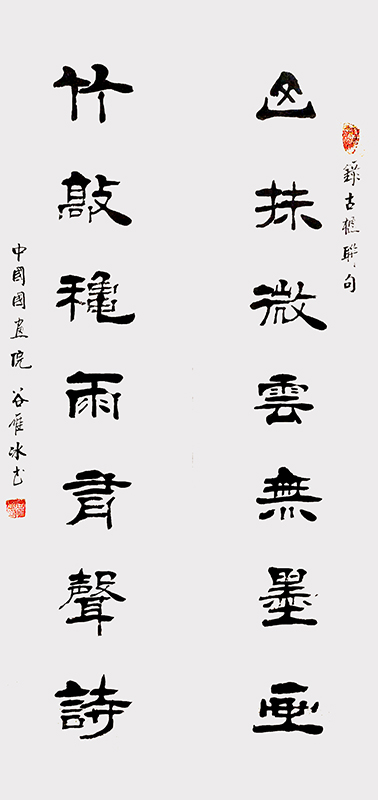 錄古楹聯句
山抹微雲無墨画
竹敲穐雨有聲詩
中國國畫院 谷雁冰书